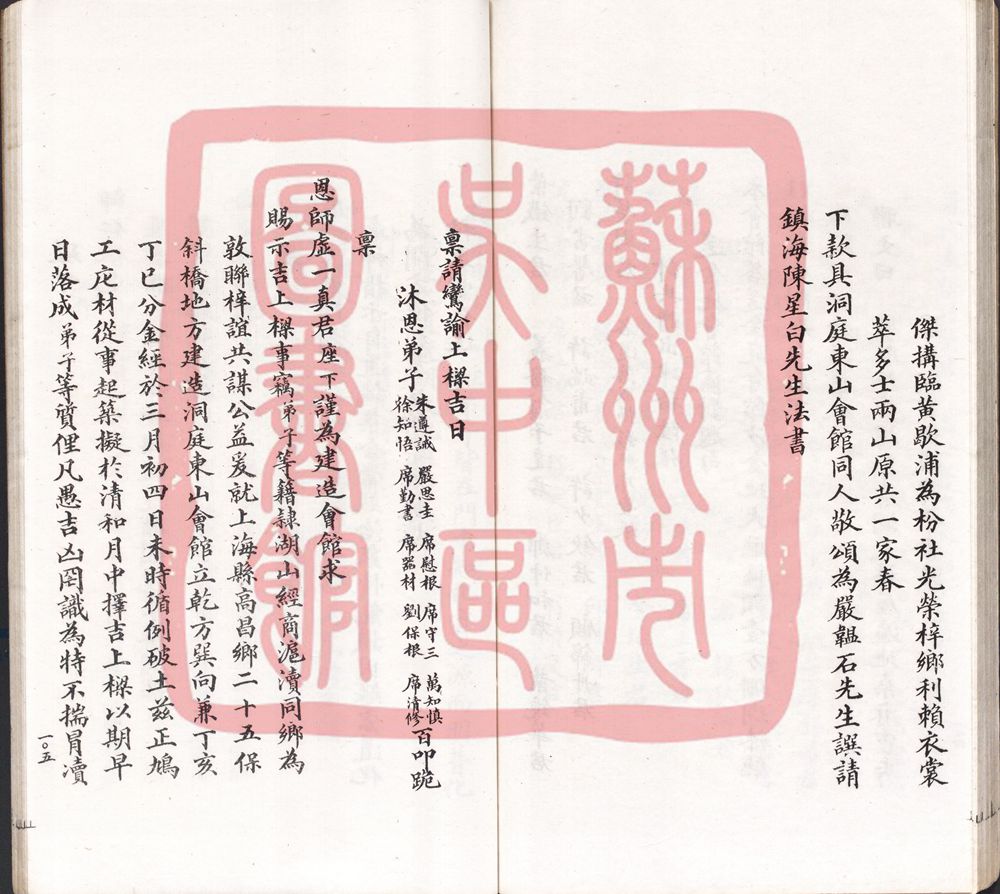 傑搆臨黄歇浦為枌社光榮梓鄉利賴衣裳
萃多士兩山原共一家春
下款具洞庭東山會館同人敬頌為嚴韞石先生譔請
鎮海陳星白先生法書
稟請鸞諭上樑吉日
沐恩弟子朱遵誠 嚴思圭 席慰根 席守三 萬知慎
徐知悟 席勤書 席器材 劉保根 席清修 百叩跪
稟
恩師虛一真君座下謹為建造會館求
賜示吉上樑事竊弟子等籍隸湖山經商滬瀆同鄉為
敦聯梓誼共謀公益爰就上海縣高昌鄉二十五保
斜橋地方建造洞庭東山會館立乾方巽向兼丁亥
丁巳分金經於三月初四日未時循例破土茲正鳩
工庀材從事起築擬於清和月中擇吉上樑以期早
日落成弟子等質俚凡愚吉凶罔識為特不揣冒瀆
一〇五
蘇州市
吴中區
圖書館